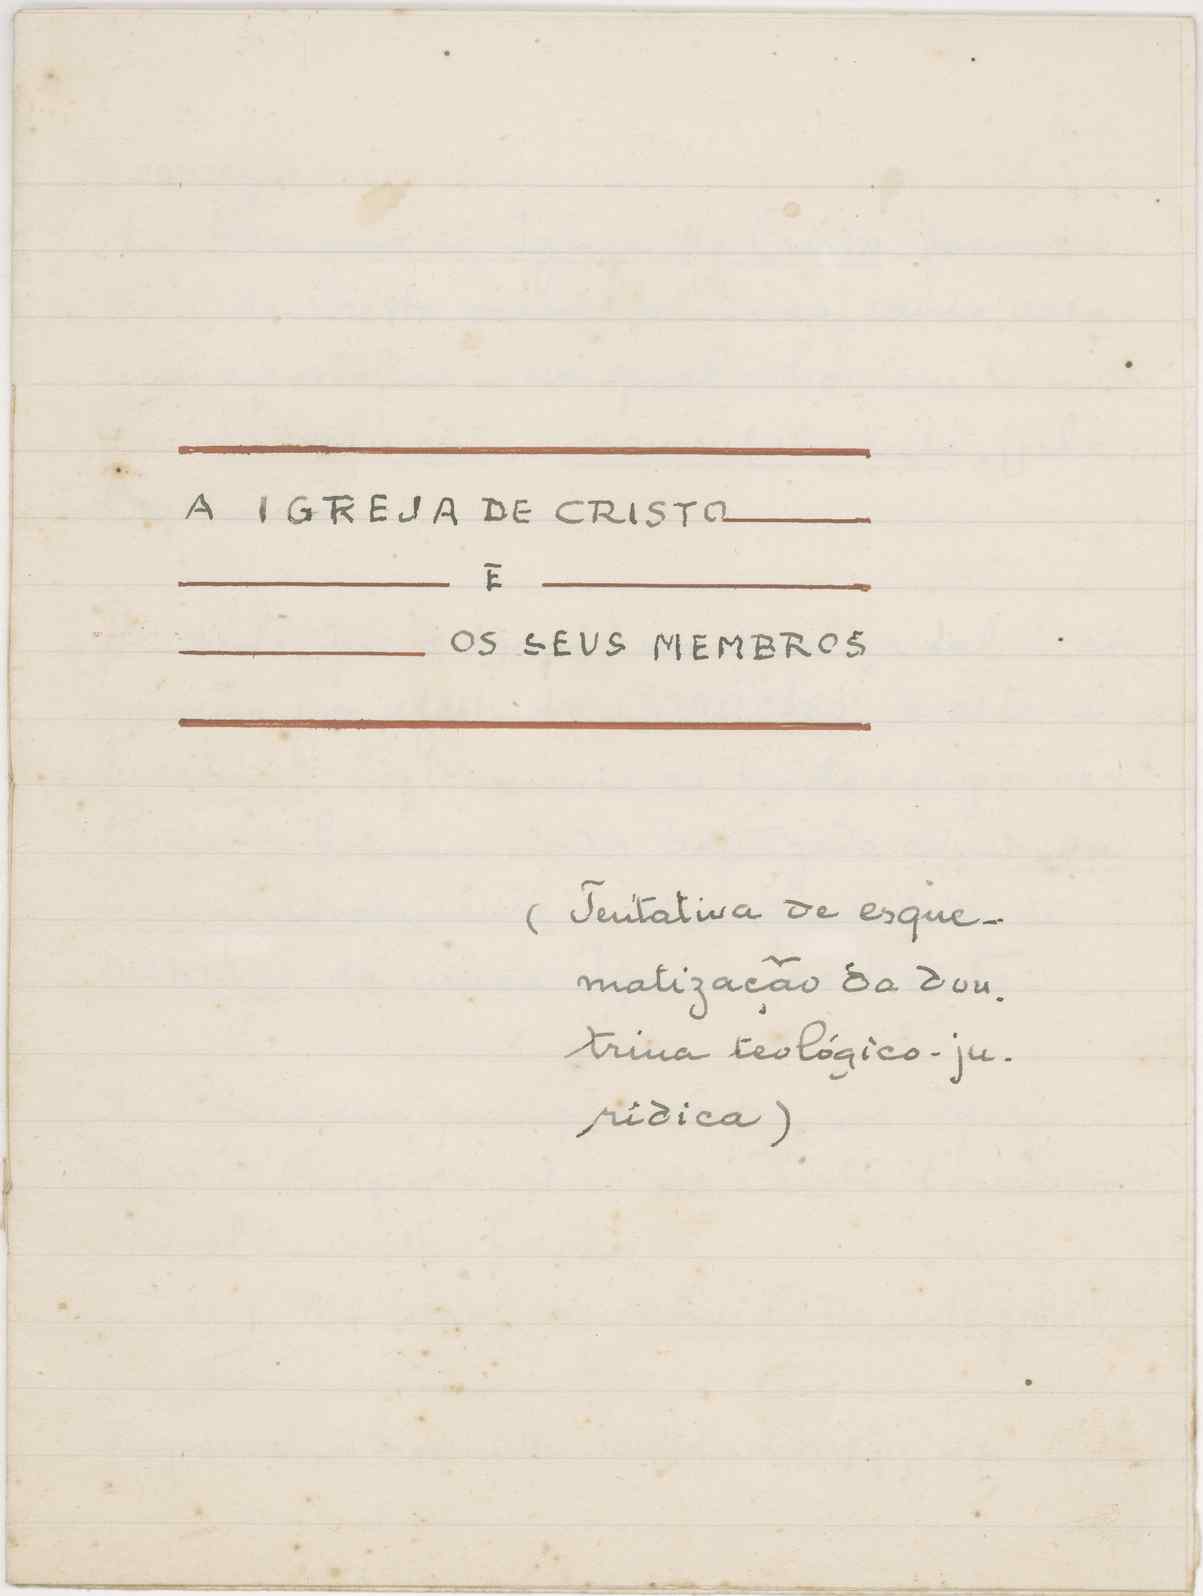 A IGREJA DE CRISTO
E
OS SEUS MEMBROS
( Tentativa de esque-
matização da dou-
trina teológico-ju-
rídica )